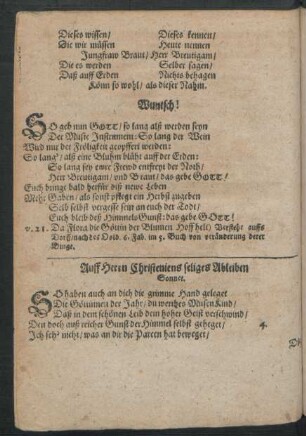 Dieses wissen/ Dieses kennen/
Die wir müssen Heute nennen
Jungfraw Braut/ Herr Breutigam/
Die es werden Selber sagen/
Daß auff Erden Nichts behagen
Könn so wohl/ als dieser Nahm.
Wuntsch!
SO geb nun GOTT/ so lang alß werden seyn
Der Musen Instrument: So lang der Wein
Wird nur der Fröligkeit geopffert werden:
So lang/ alß eine Bluhm blüht auff der Erden:
So lang sey ewre Frewd entfreyt der Noth/
Herr Breutigam/ und Braut/ das gebe GOTT/
Euch bringe bald herfür diß newe Leben
Mehr Gaben/ als sonst pflegt ein Herbst zugeben
Selb selbst vergesse seyn an euch der Todt/
Euch bleib deß Himmels Gunst: das gebe GOTT!
v. 21. Da Flora die Göttin der Blumen Hoff helt) Verstehe auffs
Dorff/ nach des Ovid. 6. Fab. im 5. Buch von veränderung derer
Dinge.
Auff Herrn Christeniens seliges Ableiben
Sonnet.
SO haben auch an dich die grimme Hand geleget
Die Göttinnen der Jahr/ du werthes Musen Kind/
Daß in dem schönen Leib dein hoher Geist verschwind/
Den doch auß reicher Gunst der Himmel selbst geheget/ 4.
Ich seh nicht/ was an dir die Parcen hat beweget/